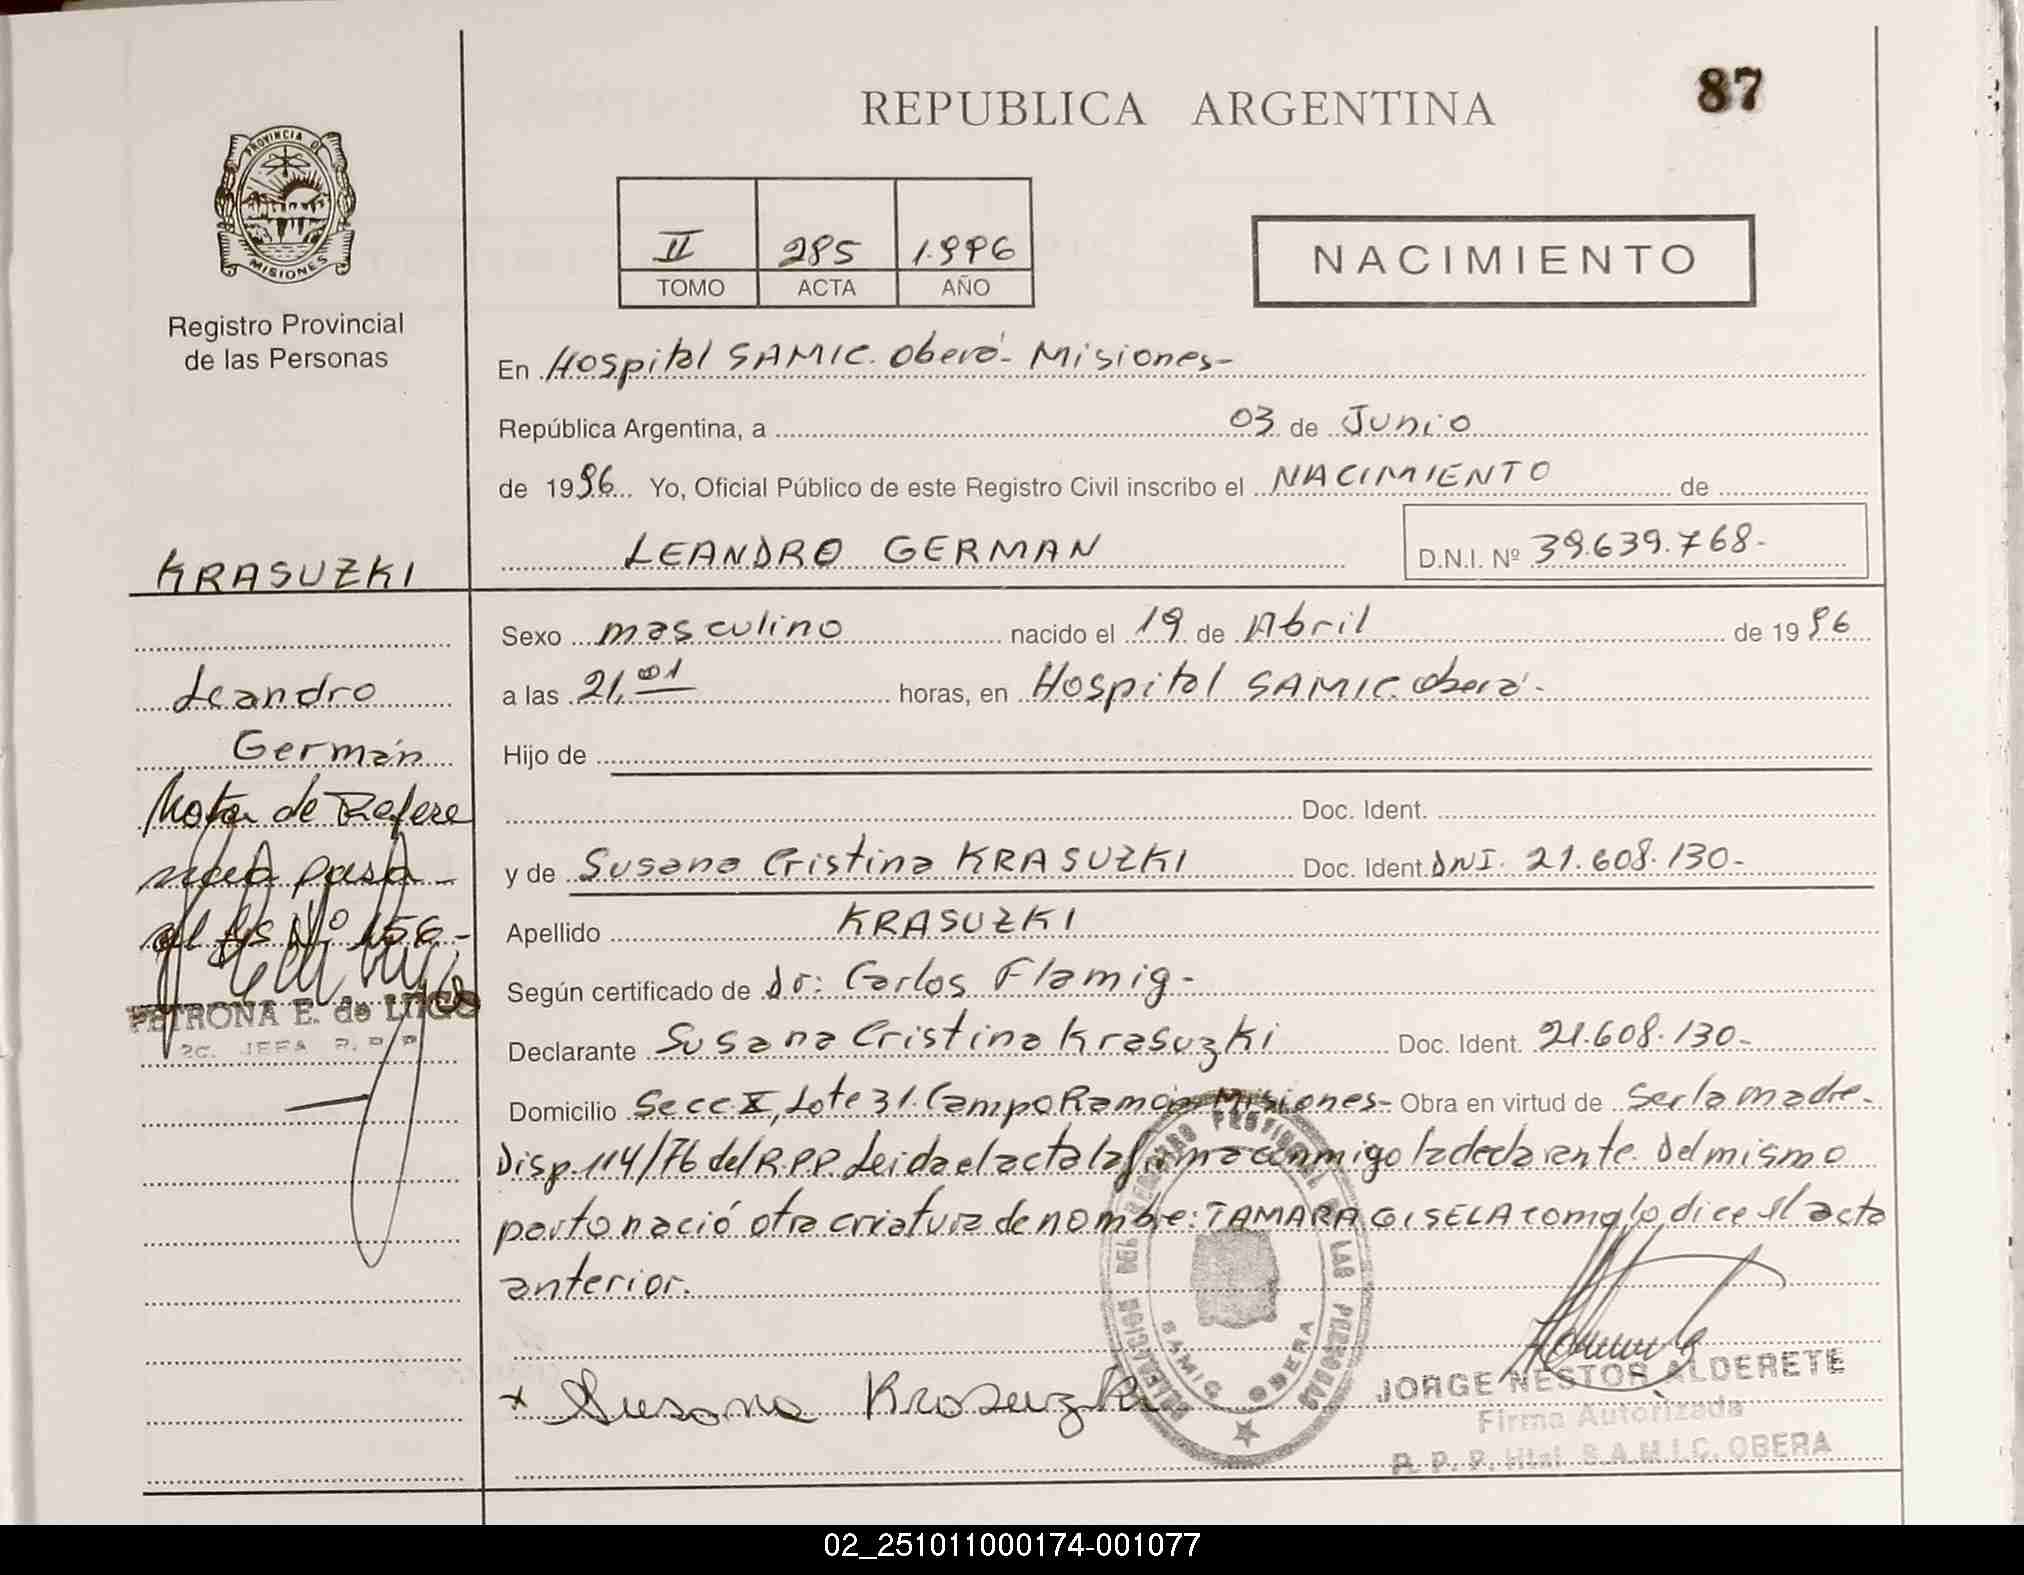 87
REPUBLICA ARGENTINA
PROVINCIA DE
MISIONES
Registro Provincial
de las Personas
II 285 1.996
TOMO ACTA AÑO
NACIMIENTO
En Hospital SAMIC. Oberá- Misiones-
República Argentina, a 03 de Junio
de 1996 Yo, Oficial Público de este Registro Civil inscribo el NACIMIENTO de
LEANDRO GERMAN D.N.I. Nº 39.639.768-
KRASUZKI
Leandro
Germán
Nota de Refere
al Nº 156-
PETRONA E. de LUGO
Sexo masculino nacido el 19 de Abril de 1996
a las 21,01 horas, en Hospital SAMIC. Oberá-
Hijo de
Doc. Ident.
y de Susana Cristina KRASUZKI Doc. Ident. DNI. 21.608.130-
Apellido KRASUZKI
Según certificado de Dr: Carlos Flamig-
Declarante Susana Cristina Krasuzki Doc. Ident. 21.608.130-
Domicilio Secc X, Lote 31. Campo Ramón Misiones- Obra en virtud de ser la madre-
Disp. 114/76 del R.P.P. Leida el acta la firma conmigo la declarante. Del mismo
parto nació otra criatura de nombre: TAMARA GISELA como lo dice el acta
anterior.
x Susana Krasuzki
SAMIC OBERA
JORGE NESTOR ALDERETE
Firma Autorizada
R. P. P. Htal. S.A.M.I.C. OBERA
02_251011000174-001077